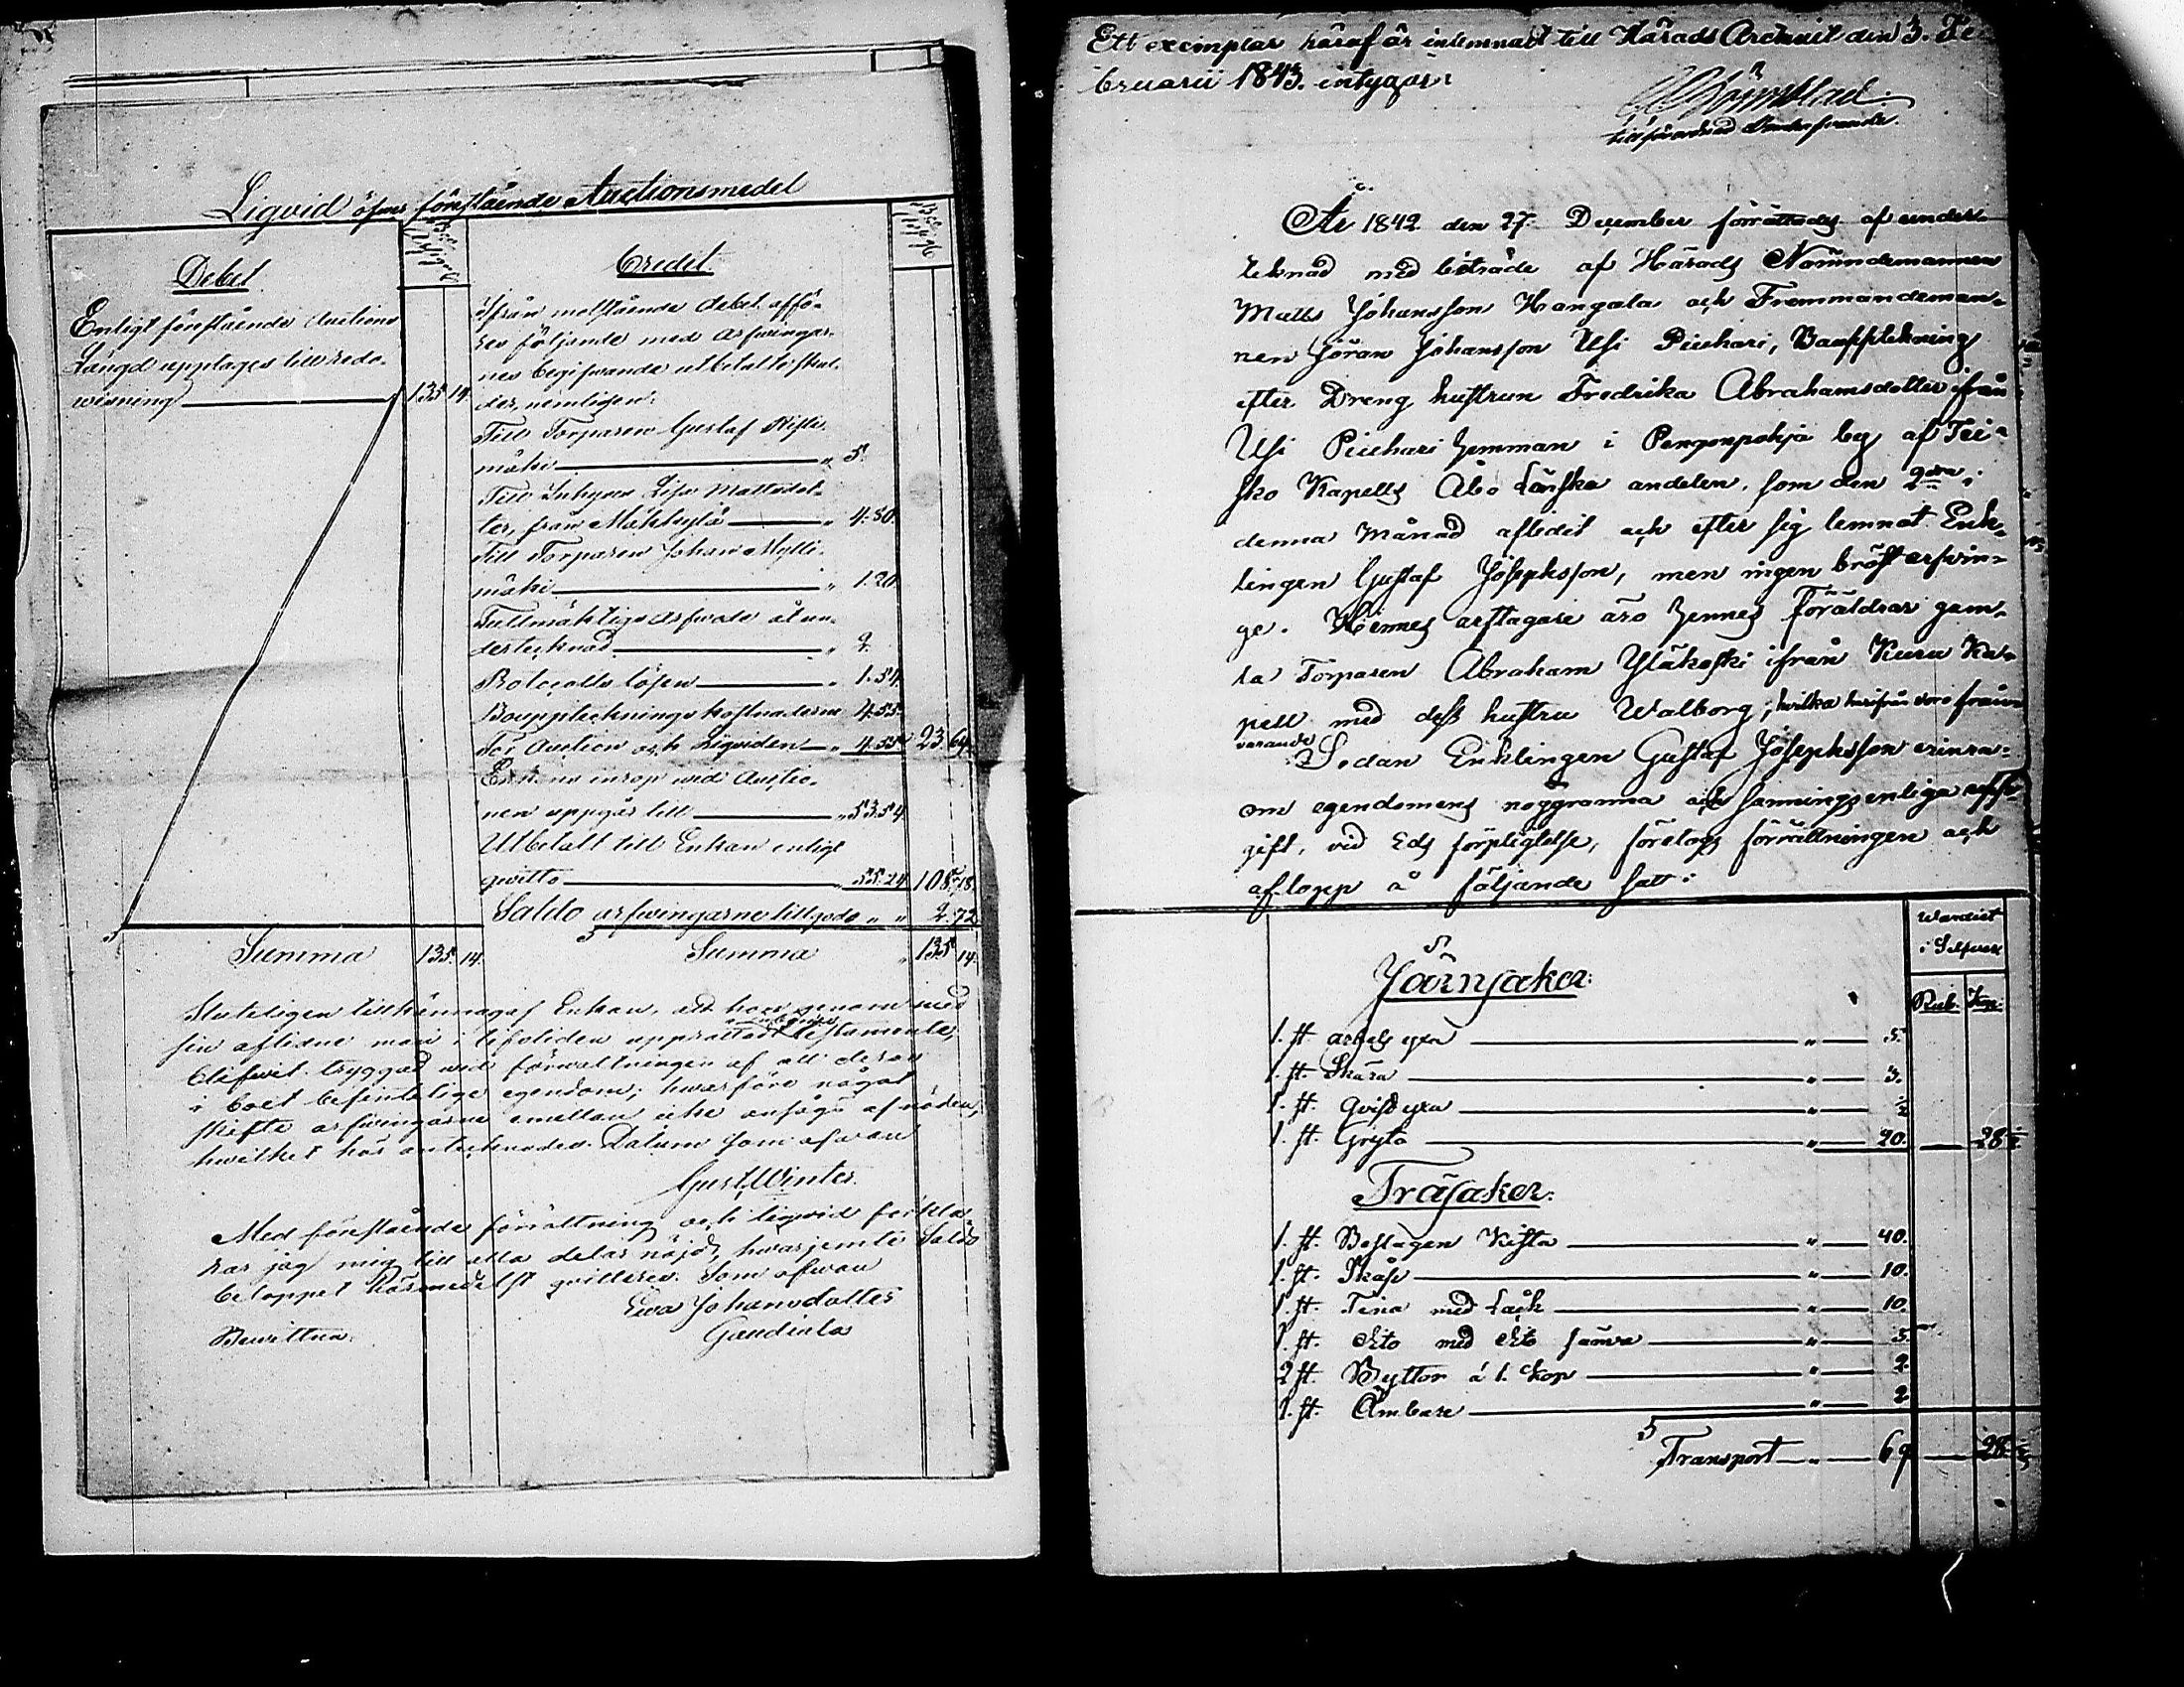 Liqvid öfver förestående Auctionsmedel
Debet.
Enligt förestående Auctions
Längd upptages till redo-
visning 135 14.
Summa 135. 14.
Credit
Ifrån motstående debet affö-
res följande med arfvingar-
nes begifvande utbetalte skul-
der, nemligen:
Till Torparen Gustaf
mäki " 5.
Till Inhyses Lisa Mattsdot-
ter, från " 4.80.
Till Torparen Johan Mylli-
mäki " 1.20
Fullmäktige arfvode åt un-
dertecknad " 2.
Protocolls lösen " 1.54.
Bouppteckningskostnaderne 4.55.
För Auction och Liqviden " 4.55 23.64.
Enkans inrop vid Auctio-
nen uppgår till " 53.54
Utbetalt till Enkan enligt
qvitto " 55.24 108.78.
Saldo arfvingarne tillgodo " " 2.72
Summa " 135 14.
Sluteligen tillkännagaf Enkan, att hon genom med
sin aflidne man i lifstiden upprättadt testamente,
blifvit tryggad vid förvaltningen af all deras
i boet befintelige egendom; hvarföre något
skifte arfvingarne emellan icke ansågs af nöden,
hvilket här antecknades. Datum som ofvan
Gust. Winter.
Med förestående förrättning och liqvid förkla-
rar jag mig till alla delar nöjd, hvarjemte Saldo
beloppet härmedelst qvitteres. Som ofvan
Ewa Johansdotter
Bevittna:
Ett exemplar häraf är inlemnadt till Härads Archivit den 3. Fe-
bruarii 1843. intygar:
År 1842 den 27. December förrättades af under-
teknad med biträde af Härads Nämndemannen
Matts Johansson Hangala och Frammandeman-
nen Jöran Johansson Usi Piuhari, Bouppteckning
efter Dreng hustrun Fredrika Abrahamsdotter från
Usi Piuhari hemman i Pengonpohja by af Tei-
sko Kapells Åbo Länska andelen, som den 2dra i
denna Månad aflidit och efter sig lemnat Enk-
lingen Gustaf Josephsson, men ingen bröstarfvin-
ge. Hennes arftagare äro hennes Föräldrar gam-
la Torparen Abraham Yläkoski ifrån Kuru Ka-
pell med dess hustru Walborg; hvilka härifrån voro från-
varande
Sedan Enklingen Gustaf Josephsson erinra-
om egendomens noggranna och sanningsenliga upp-
gift, vid Eds förpligtelse, företogs förrättningen och
aflopp å följande sätt:
Wärdiet
i Silfver
Rub. Kop:
Järnsaker:
1. st. arbets yxa " 5.
1. st. Skära " 3.
1. st. qvist yxa " ½
1. st. Gryta " 20. 28 ½
Träsaker:
1. st. Beslagen Kista " 40.
1. st. Skåp " 10.
1. st. Tina med Lock " 10.
1. st. " 5.
2 st. Byttor á 1. kop " 2.
1. st. Ämbare " 2
Transport " 69 28 ½